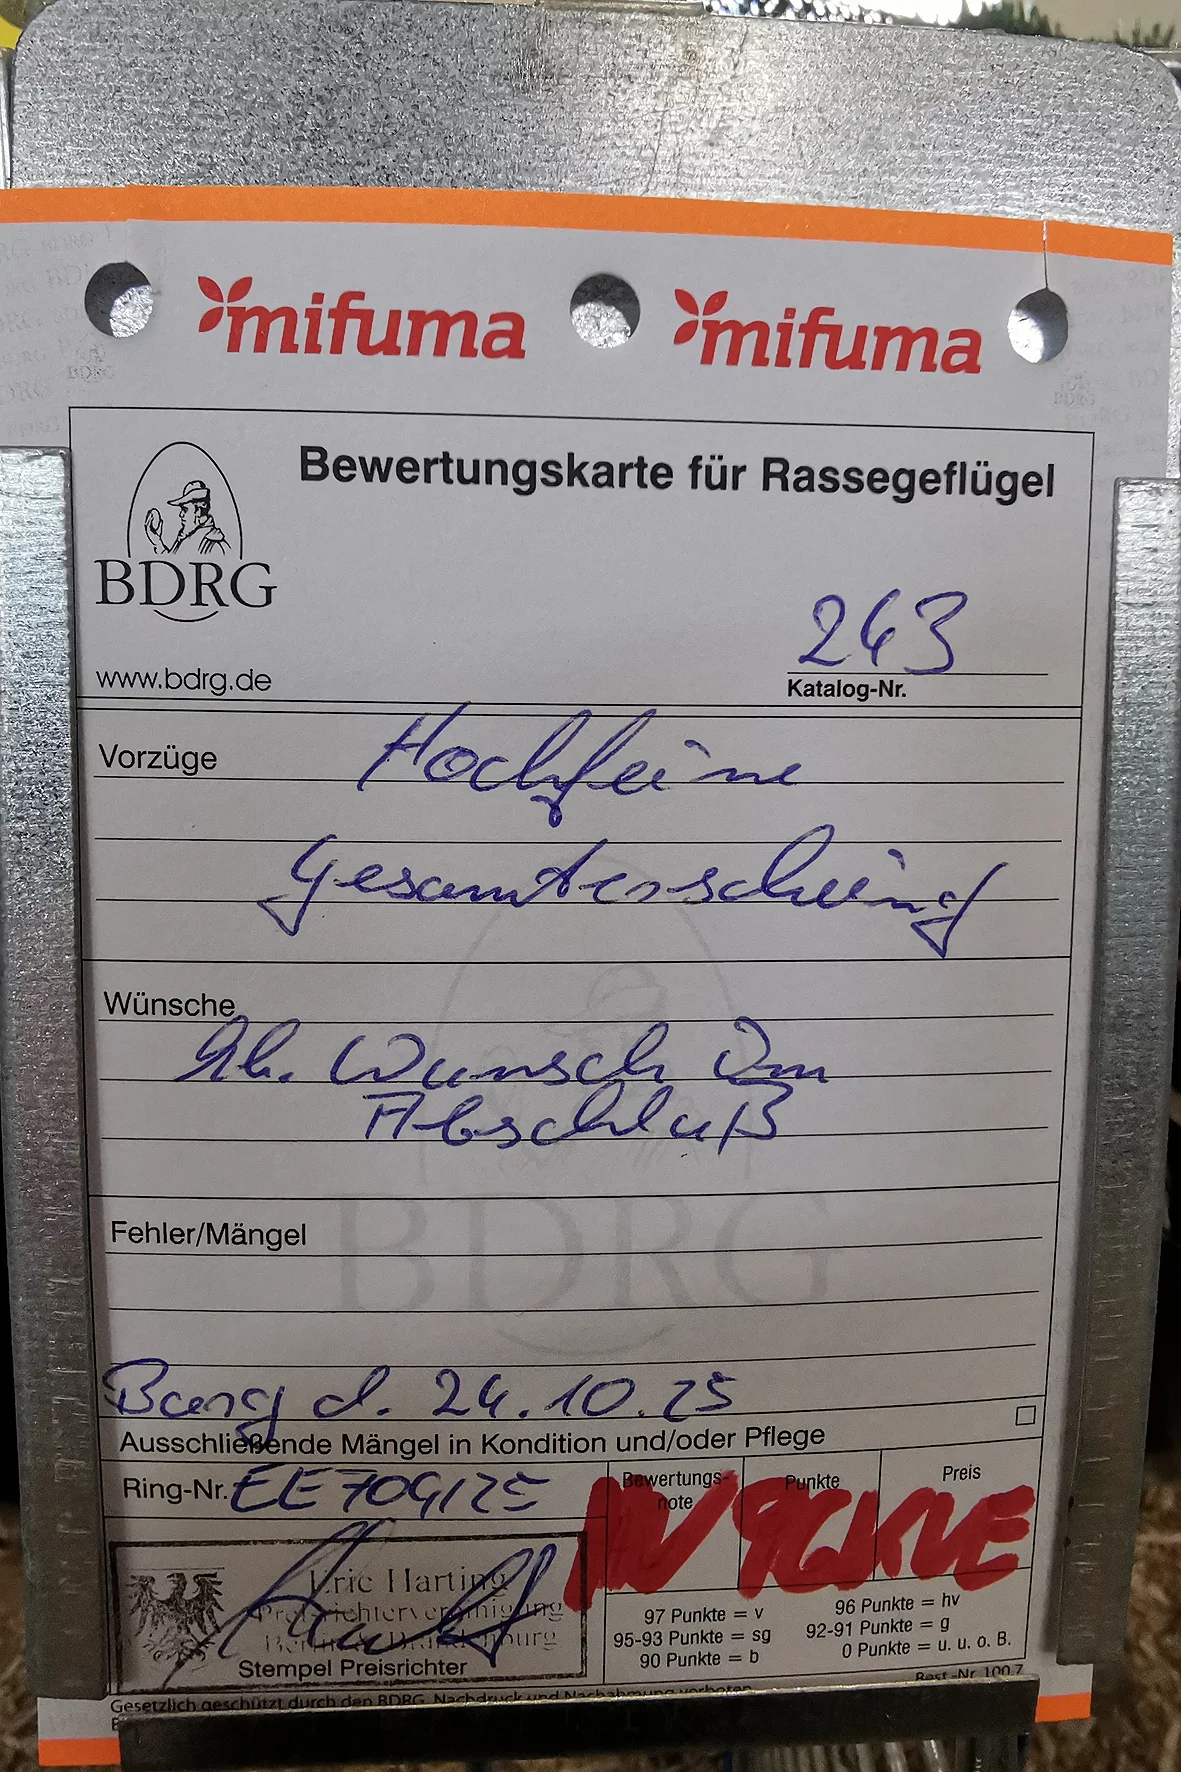 mifuma mifuma
Bewertungskarte für Rassegeflügel
BDRG
www.bdrg.de
263
Katalog-Nr.
Vorzüge Hochfeine
Gesamterscheinung
Wünsche
Wunsch im
Abschluß
BDRG
Fehler/Mängel
d. 24.10.25
Ausschließende Mängel in Kondition und/oder Pflege
Ring-Nr.
Bewertungs-
note
Punkte
Preis
HV 96 KVE
Eric Harting
Preisrichtervereinigung
Berlin & Brandenburg
Stempel Preisrichter
97 Punkte = v
95-93 Punkte = sg
90 Punkte = b
96 Punkte = hv
92-91 Punkte = g
0 Punkte = u. u. o. B.
Best.-Nr. 100.7
Gesetzlich geschützt durch den BDRG. Nachdruck und Nachahmung verboten.